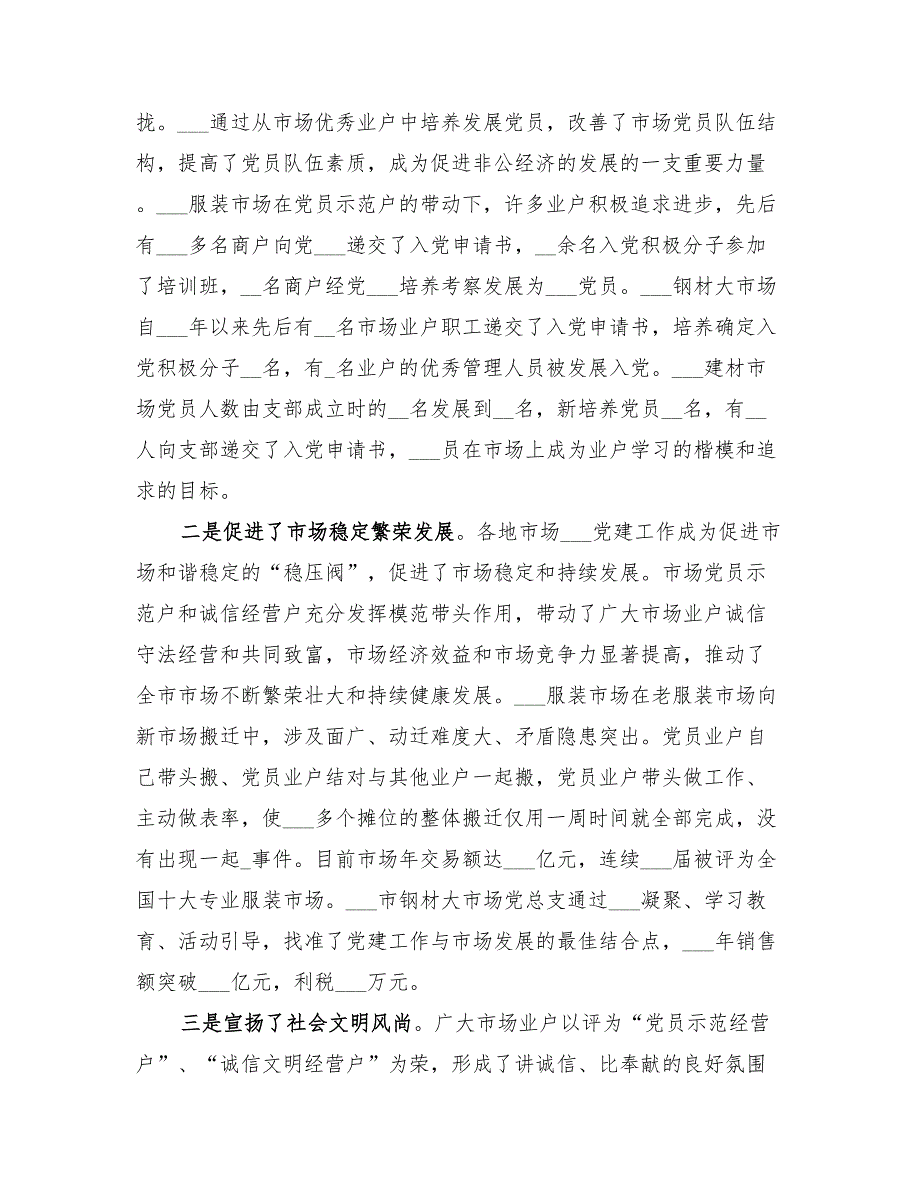 拢。___通过从市场优秀业户中培养发展党员，改善了市场党员队伍结
构，提高了党员队伍素质，成为促进非公经济的发展的一支重要力量
。___服装市场在党员示范户的带动下，许多业户积极追求进步，先后
有___多名商户向党___递交了入党申请书，__余名入党积极分子参加
了培训班，__名商户经党___培养考察发展为___党员。___钢材大市场
自___年以来先后有__名市场业户职工递交了入党申请书，培养确定入
党积极分子__名，有_名业户的优秀管理人员被发展入党。___建材市
场党员人数由支部成立时的__名发展到__名，新培养党员__名，有__
人向支部递交了入党申请书，___员在市场上成为业户学习的楷模和追
求的目标。
二是促进了市场稳定繁荣发展。各地市场___党建工作成为促进市
场和谐稳定的“稳压阀”，促进了市场稳定和持续发展。市场党员示
范户和诚信经营户充分发挥模范带头作用，带动了广大市场业户诚信
守法经营和共同致富，市场经济效益和市场竞争力显著提高，推动了
全市市场不断繁荣壮大和持续健康发展。___服装市场在老服装市场向
新市场搬迁中，涉及面广、动迁难度大、矛盾隐患突出。党员业户自
己带头搬、党员业户结对与其他业户一起搬，党员业户带头做工作、
主动做表率，使___多个摊位的整体搬迁仅用一周时间就全部完成，没
有出现一起_事件。目前市场年交易额达___亿元，连续___届被评为全
国十大专业服装市场。___市钢材大市场党总支通过___凝聚、学习教
育、活动引导，找准了党建工作与市场发展的最佳结合点，___年销售
额突破___亿元，利税___万元。
三是宣扬了社会文明风尚。广大市场业户以评为“党员示范经营
户”、“诚信文明经营户”为荣，形成了讲诚信、比奉献的良好氛围